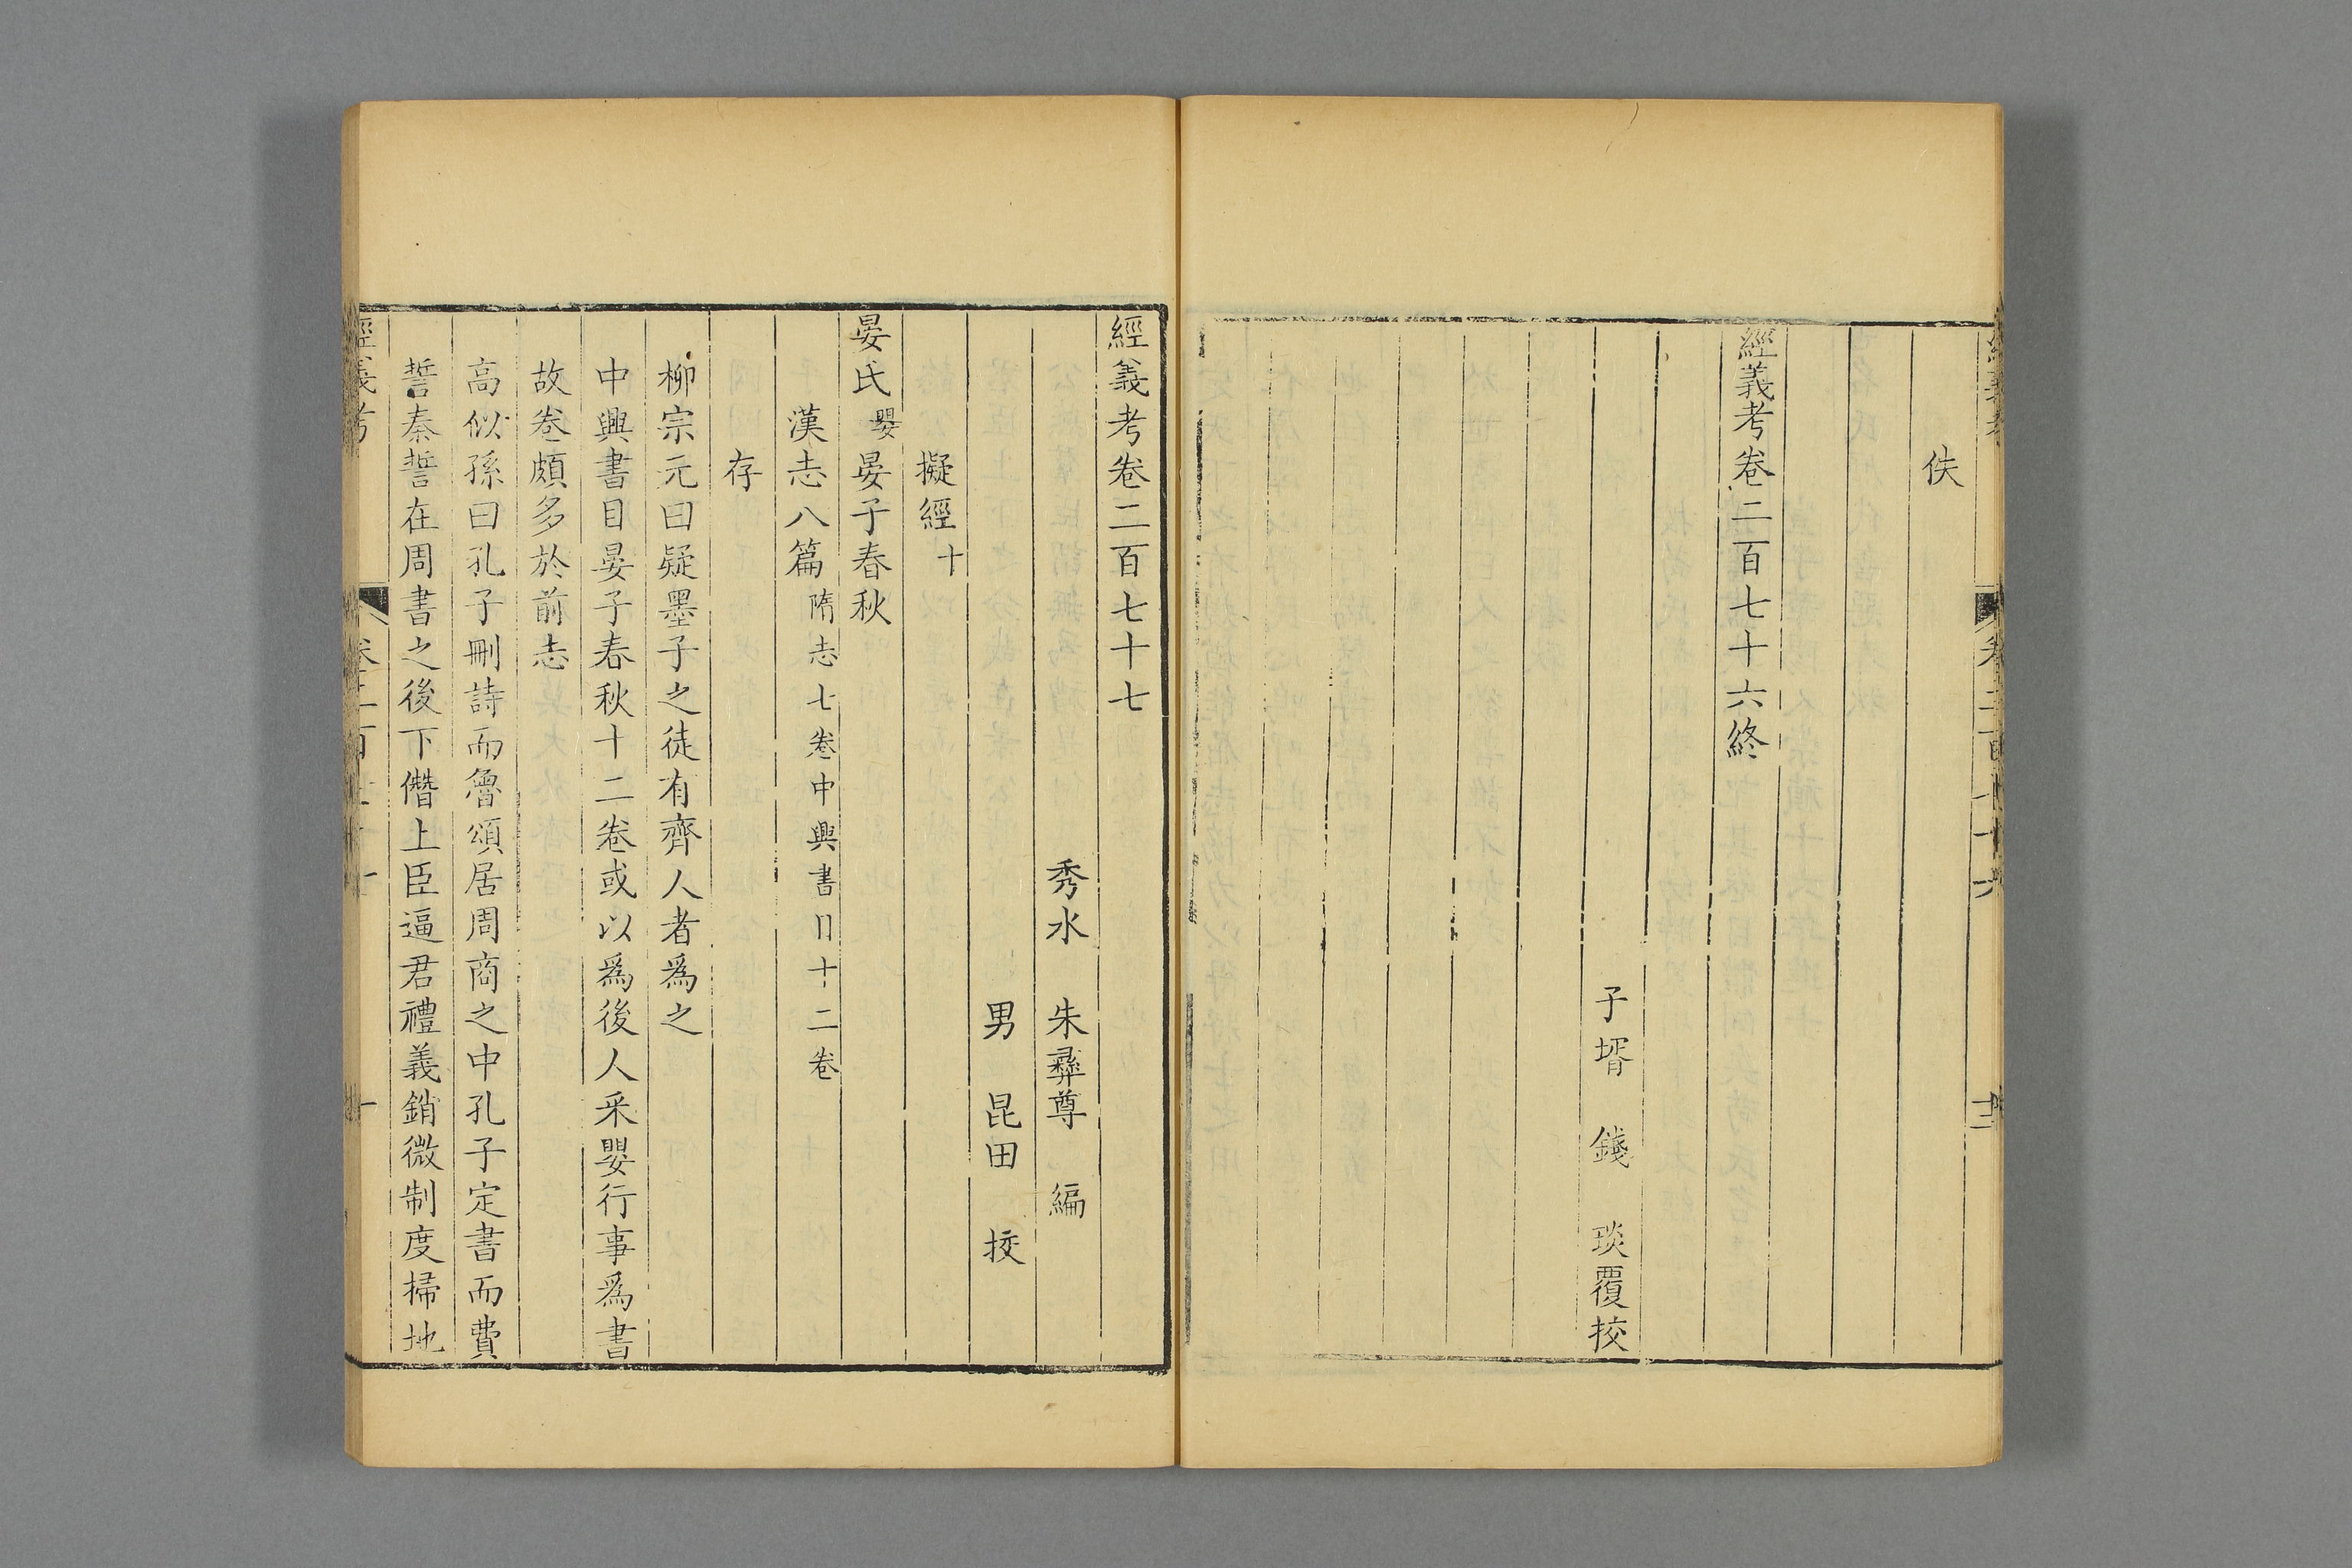 佚
經義考卷二百七十六終
子壻　錢　琰覆挍
經義考卷二百七十七
秀水　朱彝尊　編
男　昆田　挍
擬經十
晏氏嬰晏子春秋
漢志八篇隋志七卷中興書目十二卷
存
柳宗元曰疑墨子之徒有齊人者爲之
中興書目晏子春秋十二卷或以爲後人采嬰行事爲書
故卷頗多於前志
高似孫曰孔子刪詩而魯頌居周商之中孔子定書而費
誓秦誓在周書之後下僭上臣逼君禮義銷微制度掃地